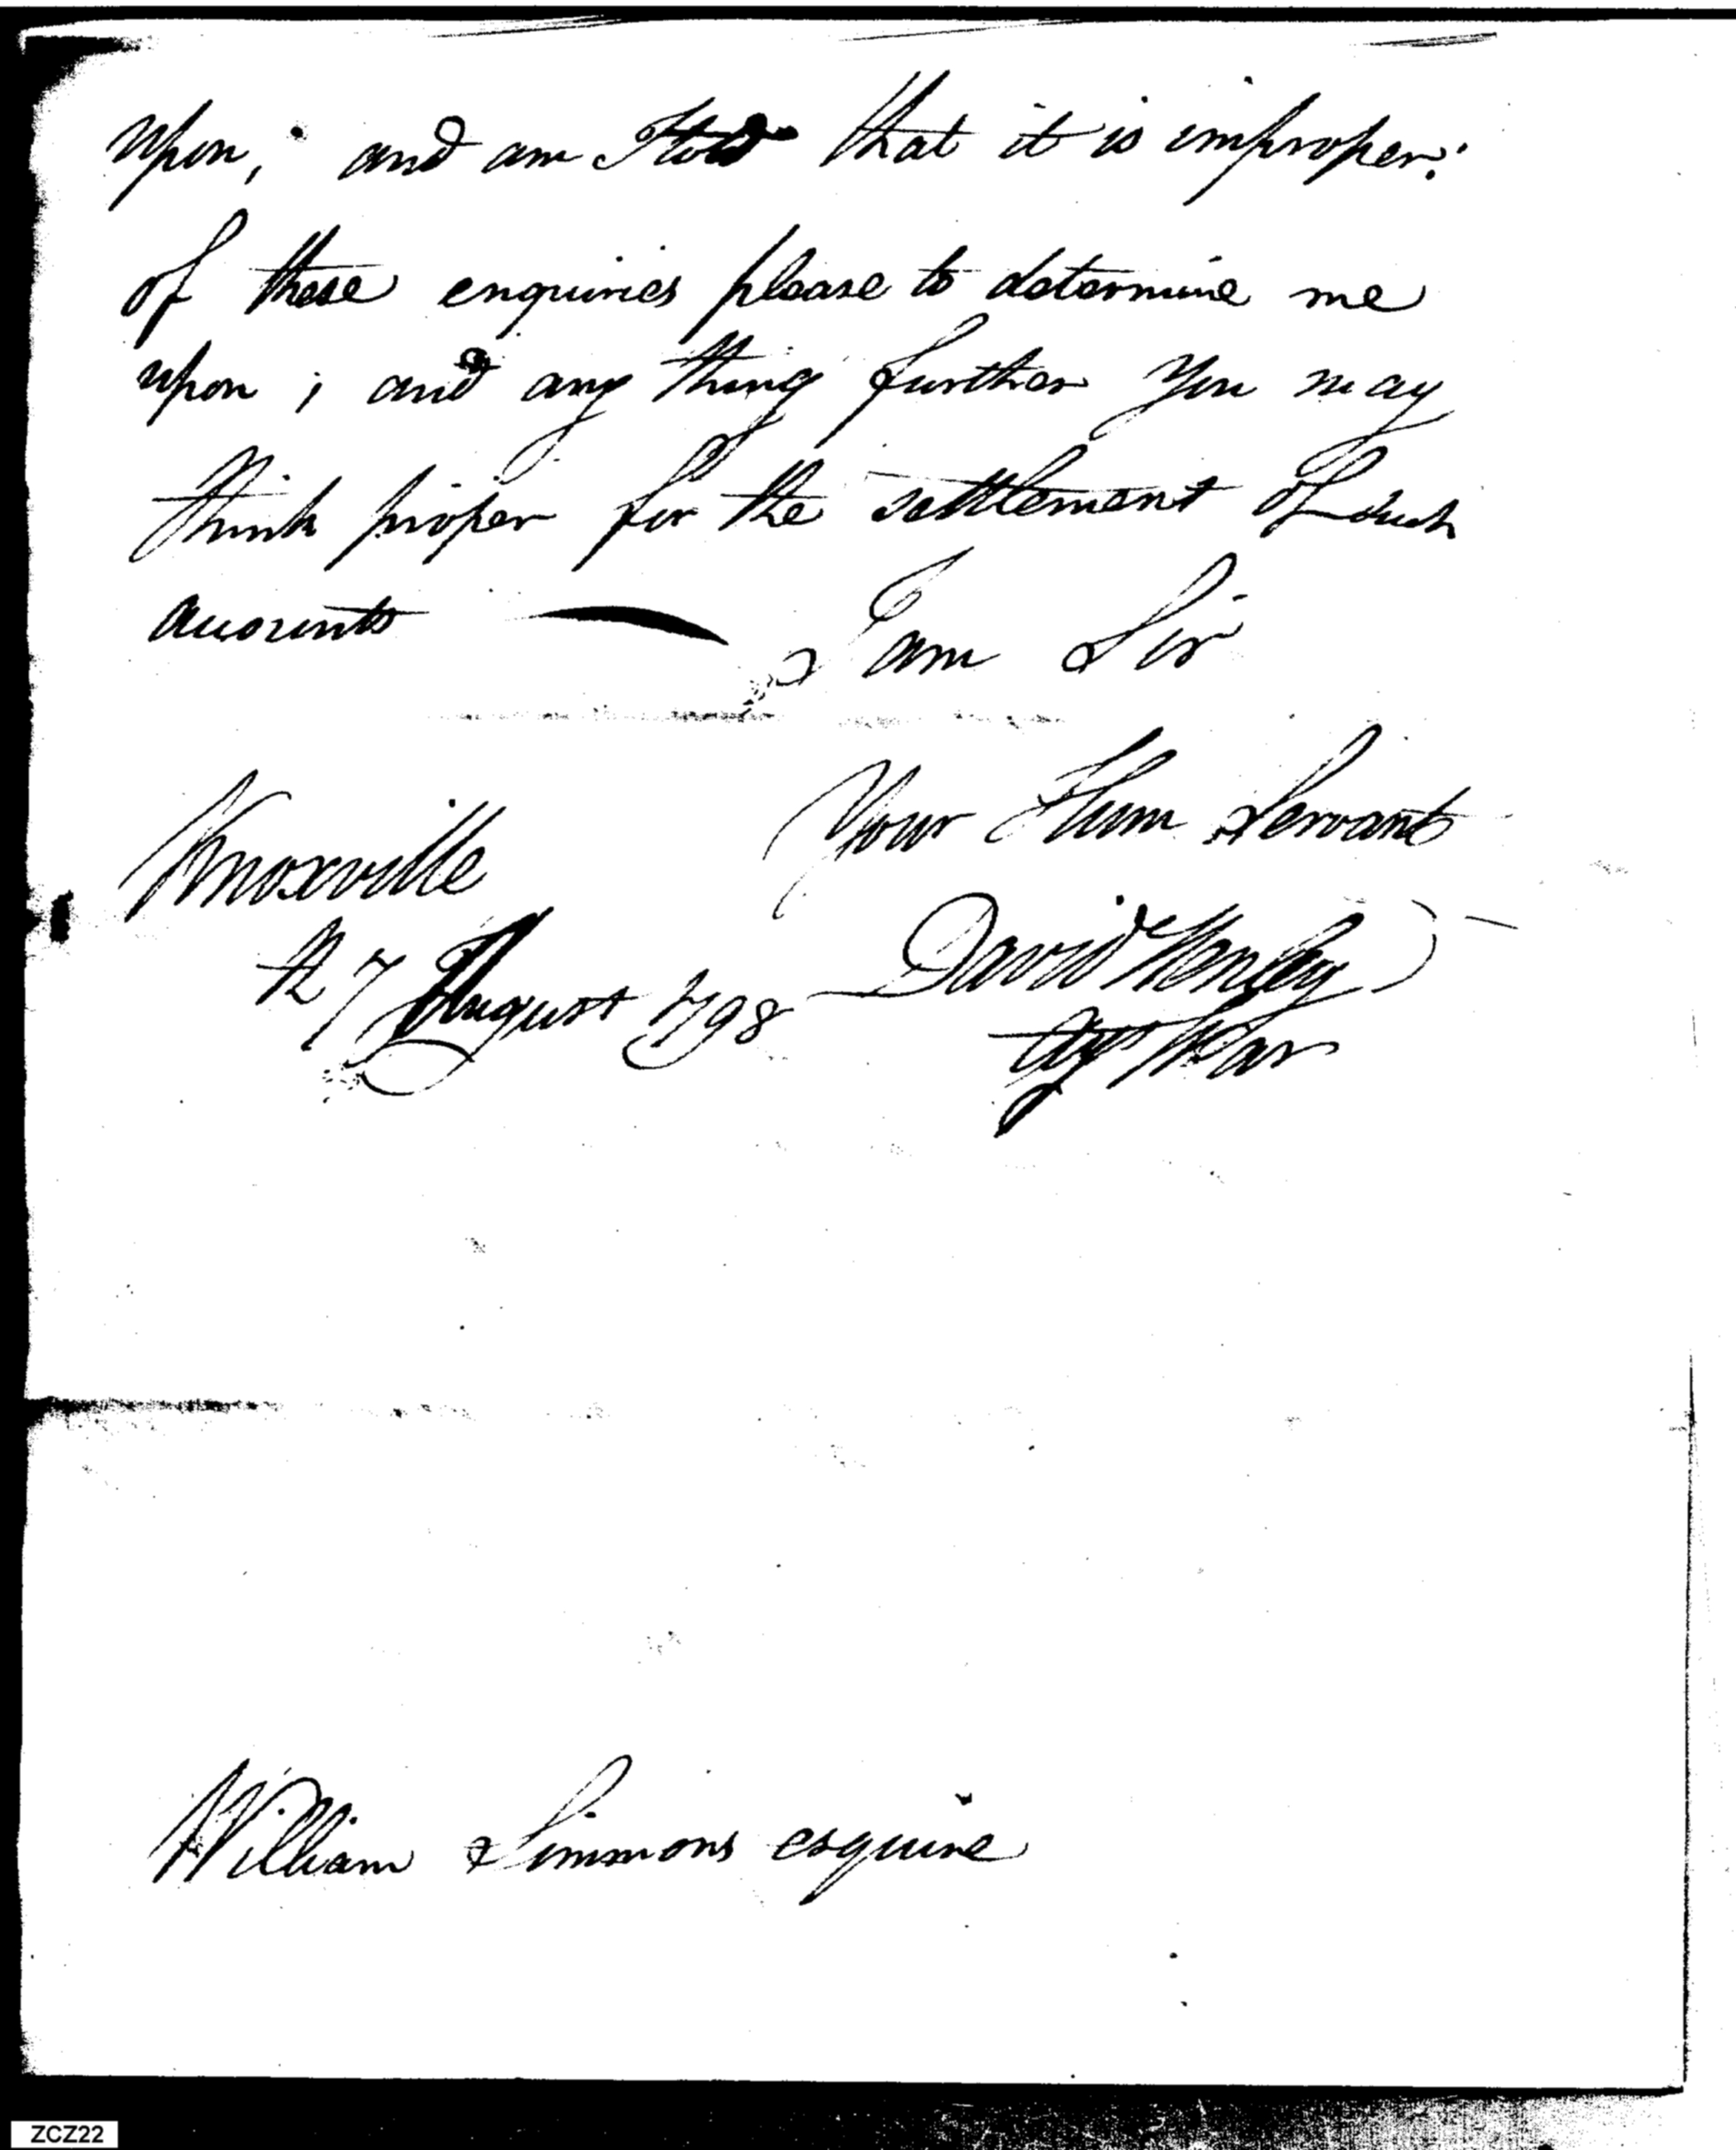 upon; and am I told that it is improper:
of these enquiries please to determine me
upon; and any thing further you may
think proper for the settlement of such
accounts — I am Sir
Your Hum Servant
Knoxville
7 August 1798
David Henley
Agt War
William Simmons esquire
ZCZ22